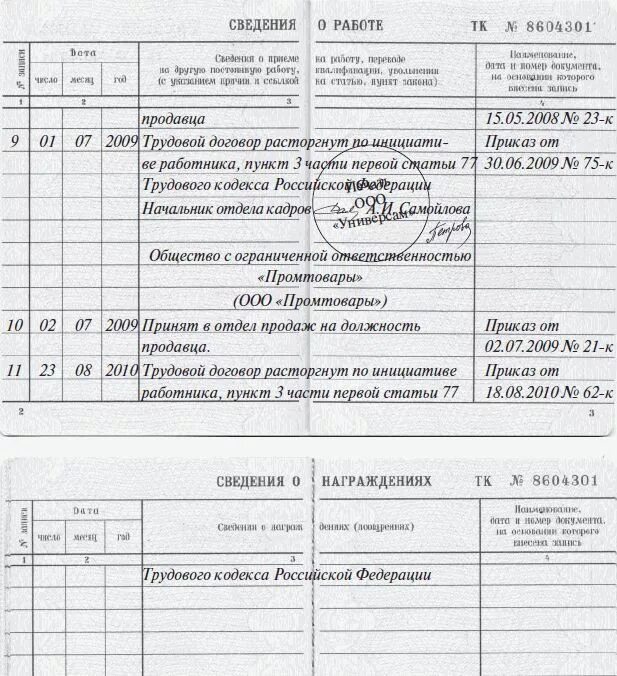 СВЕДЕНИЯ О РАБОТЕ ТК № 8604301
№ записи
Дата
число месяц год
Сведения о приеме на работу, переводе
на другую постоянную работу, квалификации, увольнении
(с указанием причин и ссылкой на статью, пункт закона)
Наименование,
дата и номер документа,
на основании которого
внесена запись
1 2 3 4
продавца 15.05.2008 № 23-к
9 01 07 2009 Трудовой договор расторгнут по инициати- Приказ от
ве работника, пункт 3 части первой статьи 77 30.06.2009 № 75-к
Трудового кодекса Российской Федерации
Начальник отдела кадров А.И. Самойлова
Печать
ООО
«Универсам»
Петрова
Общество с ограниченной ответственностью
«Промтовары»
(ООО «Промтовары»)
10 02 07 2009 Принят в отдел продаж на должность Приказ от
продавца. 02.07.2009 № 21-к
11 23 08 2010 Трудовой договор расторгнут по инициативе Приказ от
работника, пункт 3 части первой статьи 77 18.08.2010 № 62-к
2 3
СВЕДЕНИЯ О НАГРАЖДЕНИЯХ ТК № 8604301
№ записи
Дата
число месяц год
Сведения о награждениях (поощрениях)
Наименование,
дата и номер документа,
на основании которого
внесена запись
1 2 3 4
Трудового кодекса Российской Федерации